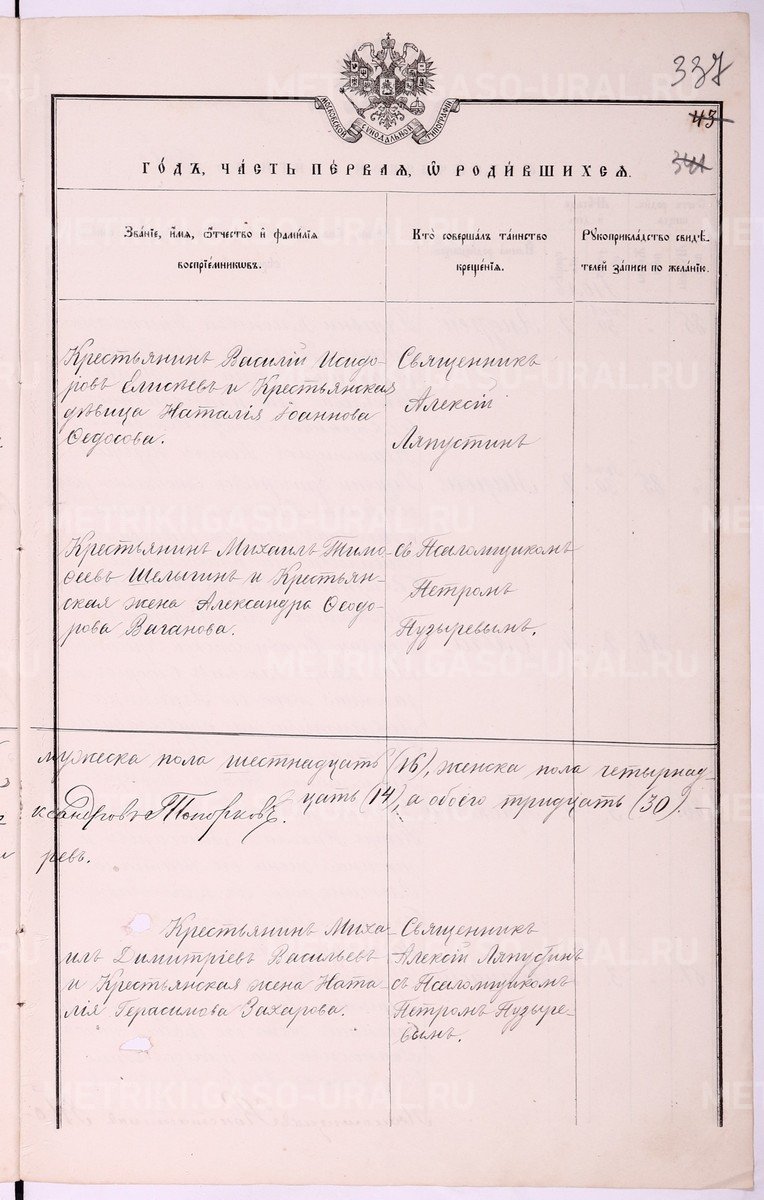 337
43
341
МОСКОВСКОЙ СѴНОДАЛЬНОЙ ТИПОГРАФІИ
ГО́ДЪ, ЧА́СТЬ ПЕ́РВАЯ, Ѿ РОДИ́ВШИХСЯ.
Зва́ніе, и́мя, ѻ́тчество и҆ фами́лія
воспріе́мниковъ.
Кто̀ соверша́лъ та́инство
креще́нія.
Рꙋкоприкла́дство свидѣ́-
телей за́писи по жела́нію.
Крестьянинъ Василій Исидо-
ровъ Елисѣевъ и Крестьянская
дѣвица Наталія Іоаннова
Ѳедосова.
Священникъ
Алексій
Ляпустинъ
Крестьянинъ Михаилъ Тимо-
ѳеевъ Шелыгинъ и Крестьян-
ская жена Александра Ѳеодо-
рова Ваганова.
съ Псаломщикомъ
Петромъ
Пузыревымъ.
мужеска пола шестнадцать (16), женска пола четырнад-
цать (14), а обоего тридцать (30). –
ксандровъ Топорковъ.
ревъ.
Крестьянинъ Миха-
илъ Димитріевъ Васильевъ
и Крестьянская жена Ната-
лія Герасимова Захарова.
Священникъ
Алексій Ляпустинъ
съ Псаломщикомъ
Петромъ Пузыре-
вымъ.
METRIKI.GASO-URAL.RU